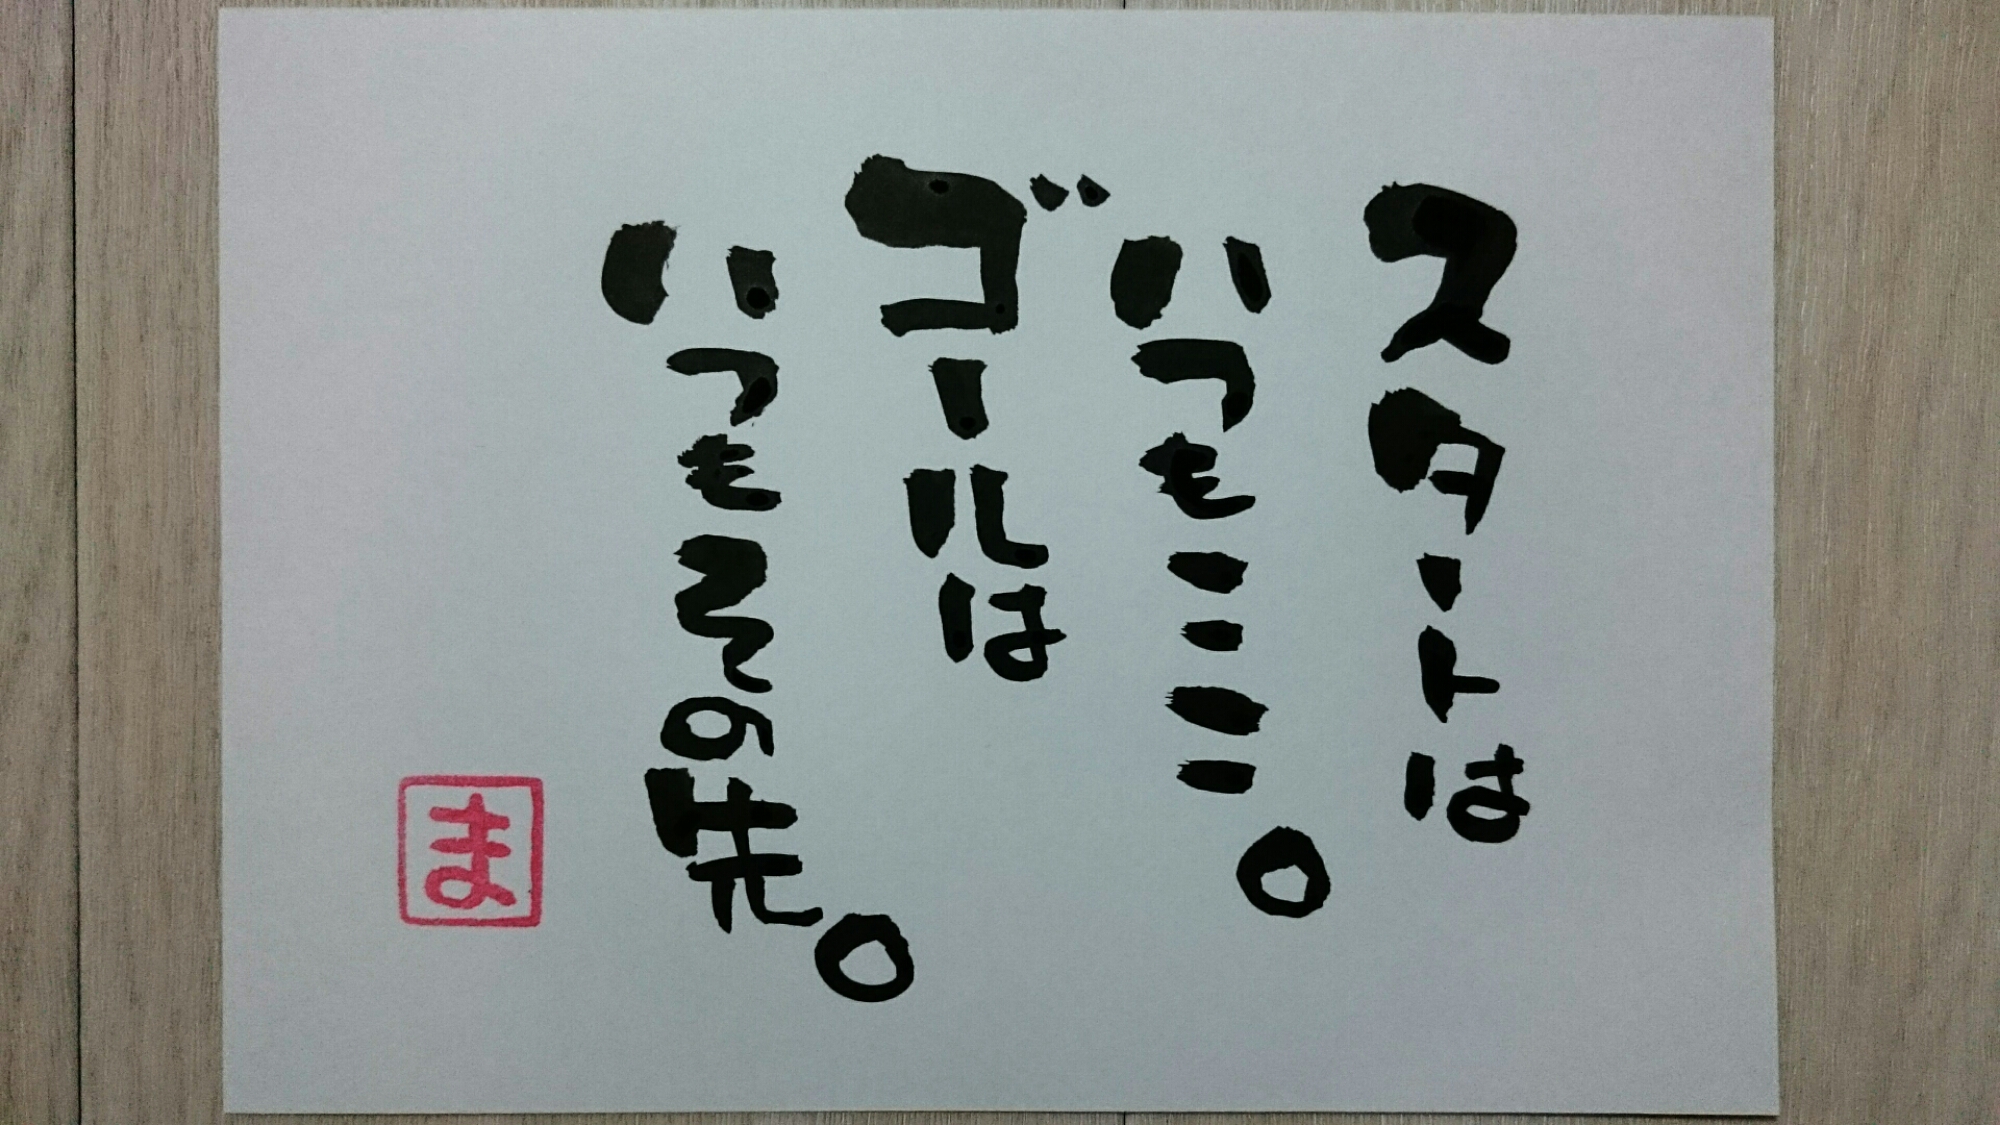 スタートは
いつもここ。
ゴールは
いつもその先。
ま